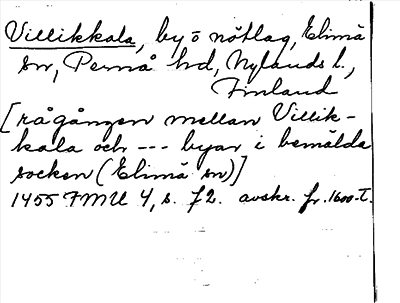 Villikkala, by o nötlag, Elimä
sn, Pernå hd, Nylands l.,
Finland
[rågången mellan Villik-
kala och --- byar i bemälda
socken (Elimä sn)]
1455 FMU 4, s. 72. avskr. fr. 1600-t.